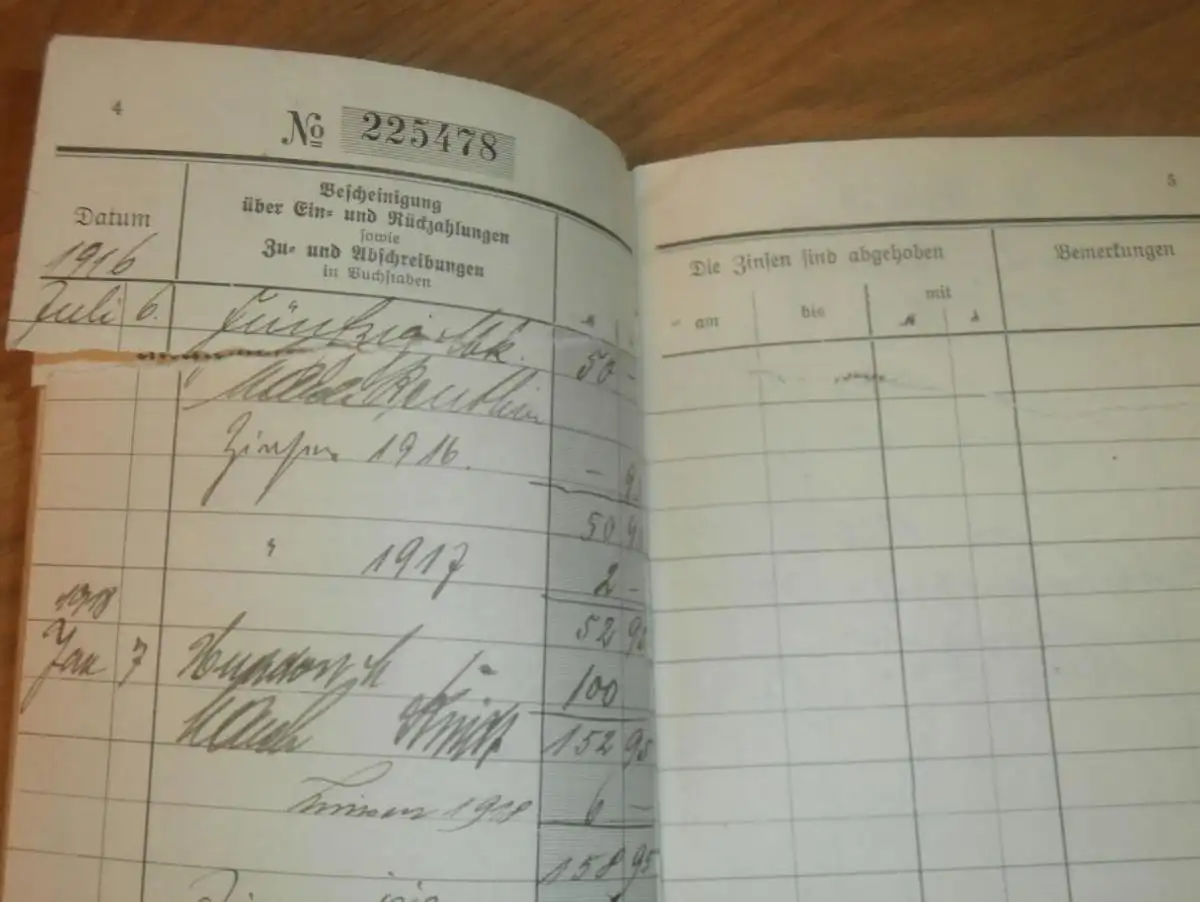 4
№ 225478
Datum
Bescheinigung
über Ein- und Rückzahlungen
sowie
Zu- und Abschreibungen
in Buchstaben
1916
Juli 6. Fünfzig Mk. 50 –
Zinsen 1916. –
50
" 1917 2 –
52
1918
Jan 7 Hundert M 100
152 95
Zinsen 1918 6 –
158 95
5
Die Zinsen sind abgehoben
Bemerkungen
am
bis
mit